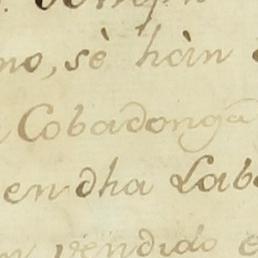 no, sè hàn
Cobadonga
en dha Lab
vendido e